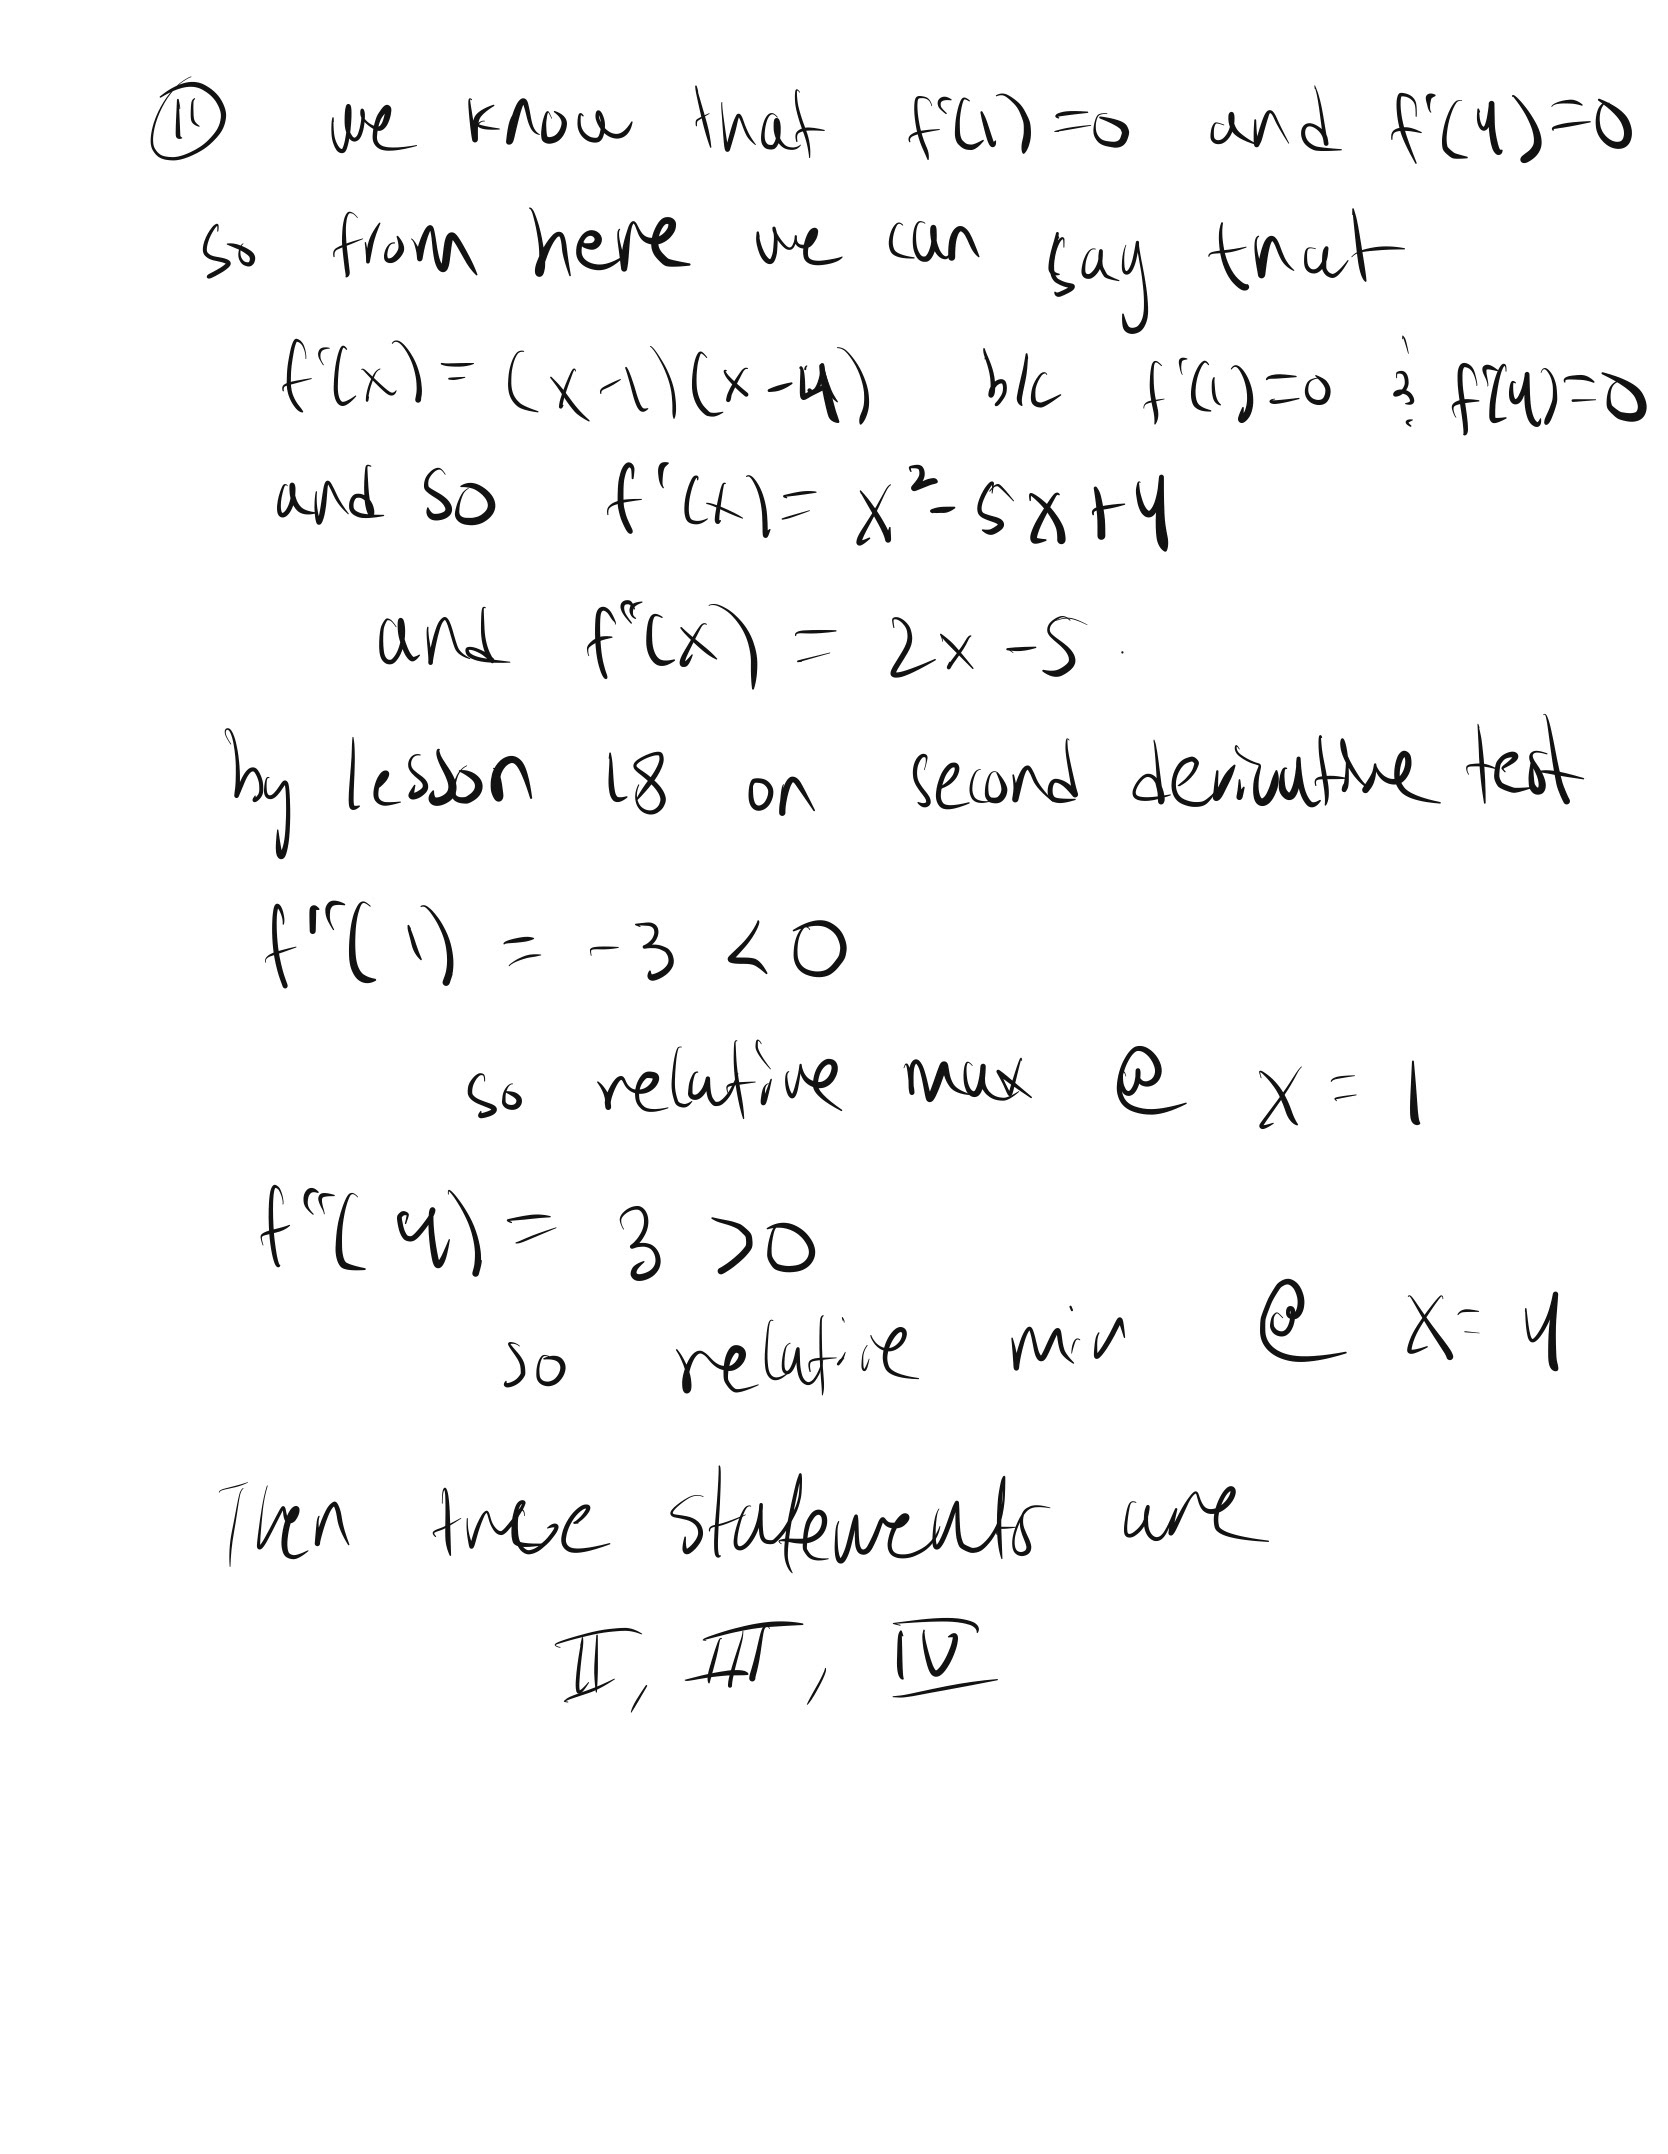 ⑪ we know that f'(1)=0 and f'(4)=0
so from here we can say that
f'(x) = (x-1)(x-4) b/c f'(1)=0 & f'(4)=0
and so f'(x) = x²-5x+4
and f''(x) = 2x-5
by lesson 18 on second derivative test
f''(1) = -3 < 0
so relative max @ x = 1
f''(4) = 3 > 0
so relative min @ x = 4
Then true statements are
II, III, IV